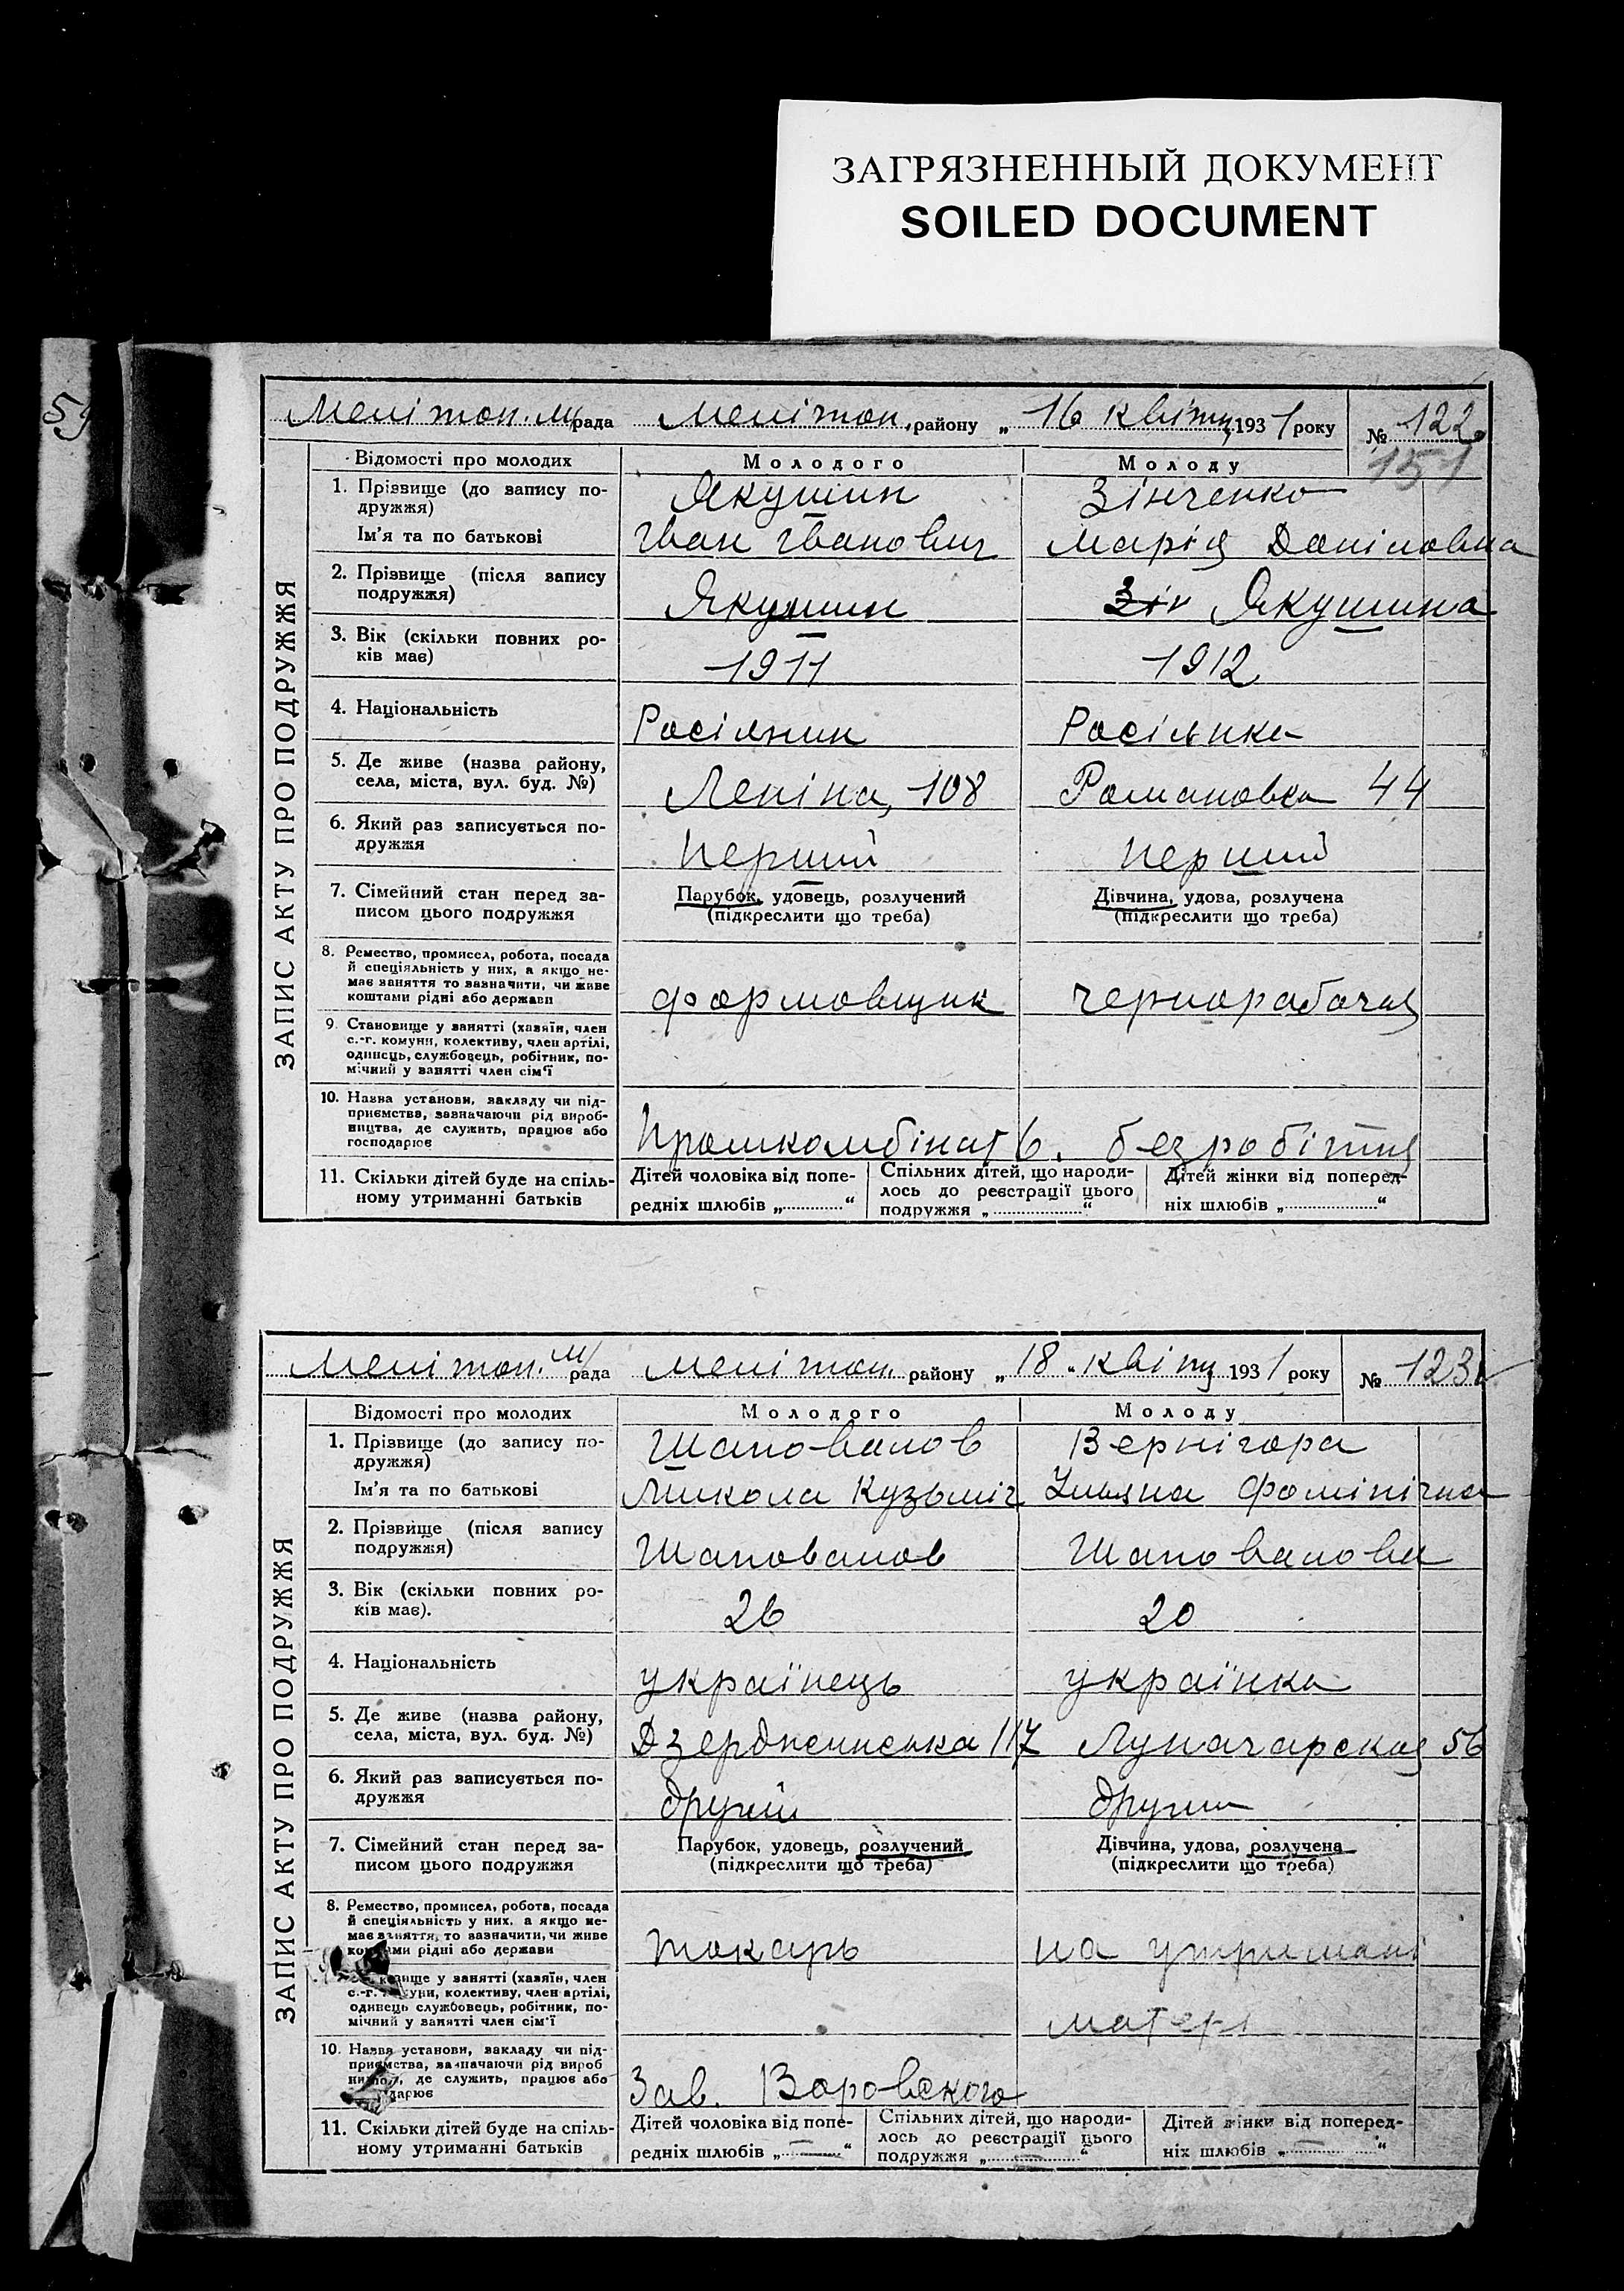 ЗАГРЯЗНЕННЫЙ ДОКУМЕНТ
SOILED DOCUMENT
59
ЗАПИС АКТУ ПРО ПОДРУЖЖЯ
Мелітоп. м/рада Мелітоп. району „ 16 квітня 1931 року № 122
151
Відомості про молодих Молодого Молоду
1. Прізвище (до запису по-
дружжя) Якушин Зінченко
Ім'я та по батькові Іван Іванович Марія Даніловна
2. Прізвище (після запису
подружжя) Якушин Зін Якушина
3. Вік (скільки повних ро-
ків має) 1911 1912
4. Національність Росіянин Росіянка
5. Де живе (назва району,
села, міста, вул. буд. №) Леніна, 108 Романовка 44
6. Який раз записується по-
дружжя перший перший
7. Сімейний стан перед за- Парубок, удовець, розлучений Дівчина, удова, розлучена
писом цього подружжя (підкреслити що треба) (підкреслити що треба)
8. Ремество, промисел, робота, посада
й спеціяльність у них, а якщо не-
має заняття то зазначити, чи живе
коштами рідні або держави формовщик чернорабочая
9. Становище у занятті (хазяїн, член
с.-г. комуни, колективу, член артілі,
одинець, службовець, робітник, по-
мічний у занятті член сім'ї
10. Назва установи, закладу чи під-
приємства, зазначаючи рід вироб-
ництва, де служить, працює або
господарює Промкомбінат б. безробітня
11. Скільки дітей буде на спіль- Дітей чоловіка від попе- Спільних дітей, що народи- Дітей жінки від поперед-
ному утриманні батьків редніх шлюбів „ “ лось до реєстрації цього ніх шлюбів „ “
подружжя „ “
ЗАПИС АКТУ ПРО ПОДРУЖЖЯ
Мелітоп. м/рада Мелітоп. району „ 18 “ квітня 1931 року № 123
Відомості про молодих Молодого Молоду
1. Прізвище (до запису по-
дружжя) Шаповалов Вернігора
Ім'я та по батькові Микола Кузьміч Уляна Фомінічна
2. Прізвище (після запису
подружжя) Шаповалов Шаповалова
3. Вік (скільки повних ро-
ків має). 26 20
4. Національність українець українка
5. Де живе (назва району,
села, міста, вул. буд. №) Дзержинська 117 Луначарская 56
6. Який раз записується по-
дружжя другий другий
7. Сімейний стан перед за- Парубок, удовець, розлучений Дівчина, удова, розлучена
писом цього подружжя (підкреслити що треба) (підкреслити що треба)
8. Ремество, промисел, робота, посада
й спеціяльність у них, а якщо не-
має заняття, то зазначити, чи живе
рідні або держави токарь на утримані
у занятті (хазяїн, член
с.-г. колективу, член артілі,
одинець службовець, робітник, по-
мічний у занятті член сім'ї матері
10. Назва установи, закладу чи під-
приємства, зазначаючи рід вироб
де служить, працює або
Зав. Воровского
11. Скільки дітей буде на спіль- Дітей чоловіка від попе- Спільних дітей, що народи- Дітей жінки від поперед-
ному утриманні батьків редніх шлюбів „ — “ лось до реєстрації цього ніх шлюбів „ — “
подружжя „ — “